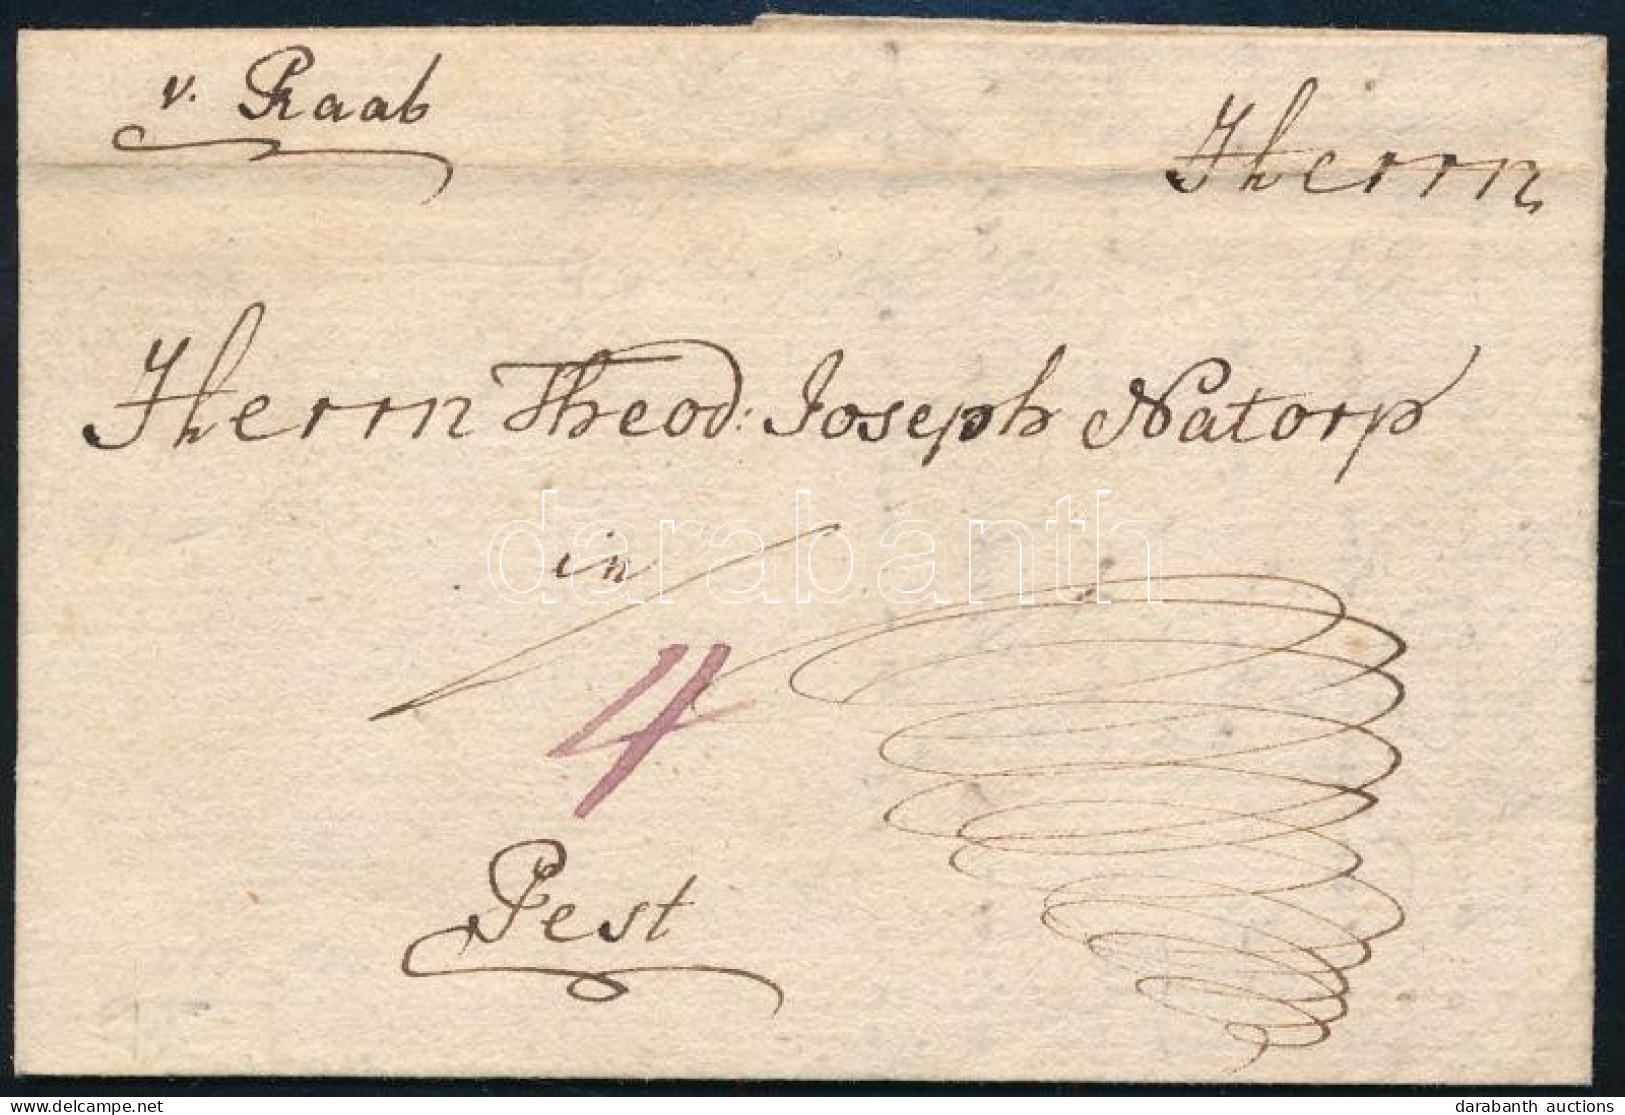 v. Raab
Herrn
Herrn Theod: Joseph Natorp
in
4
Pest
darabanth
darabanth auctions
www.delcampe.net